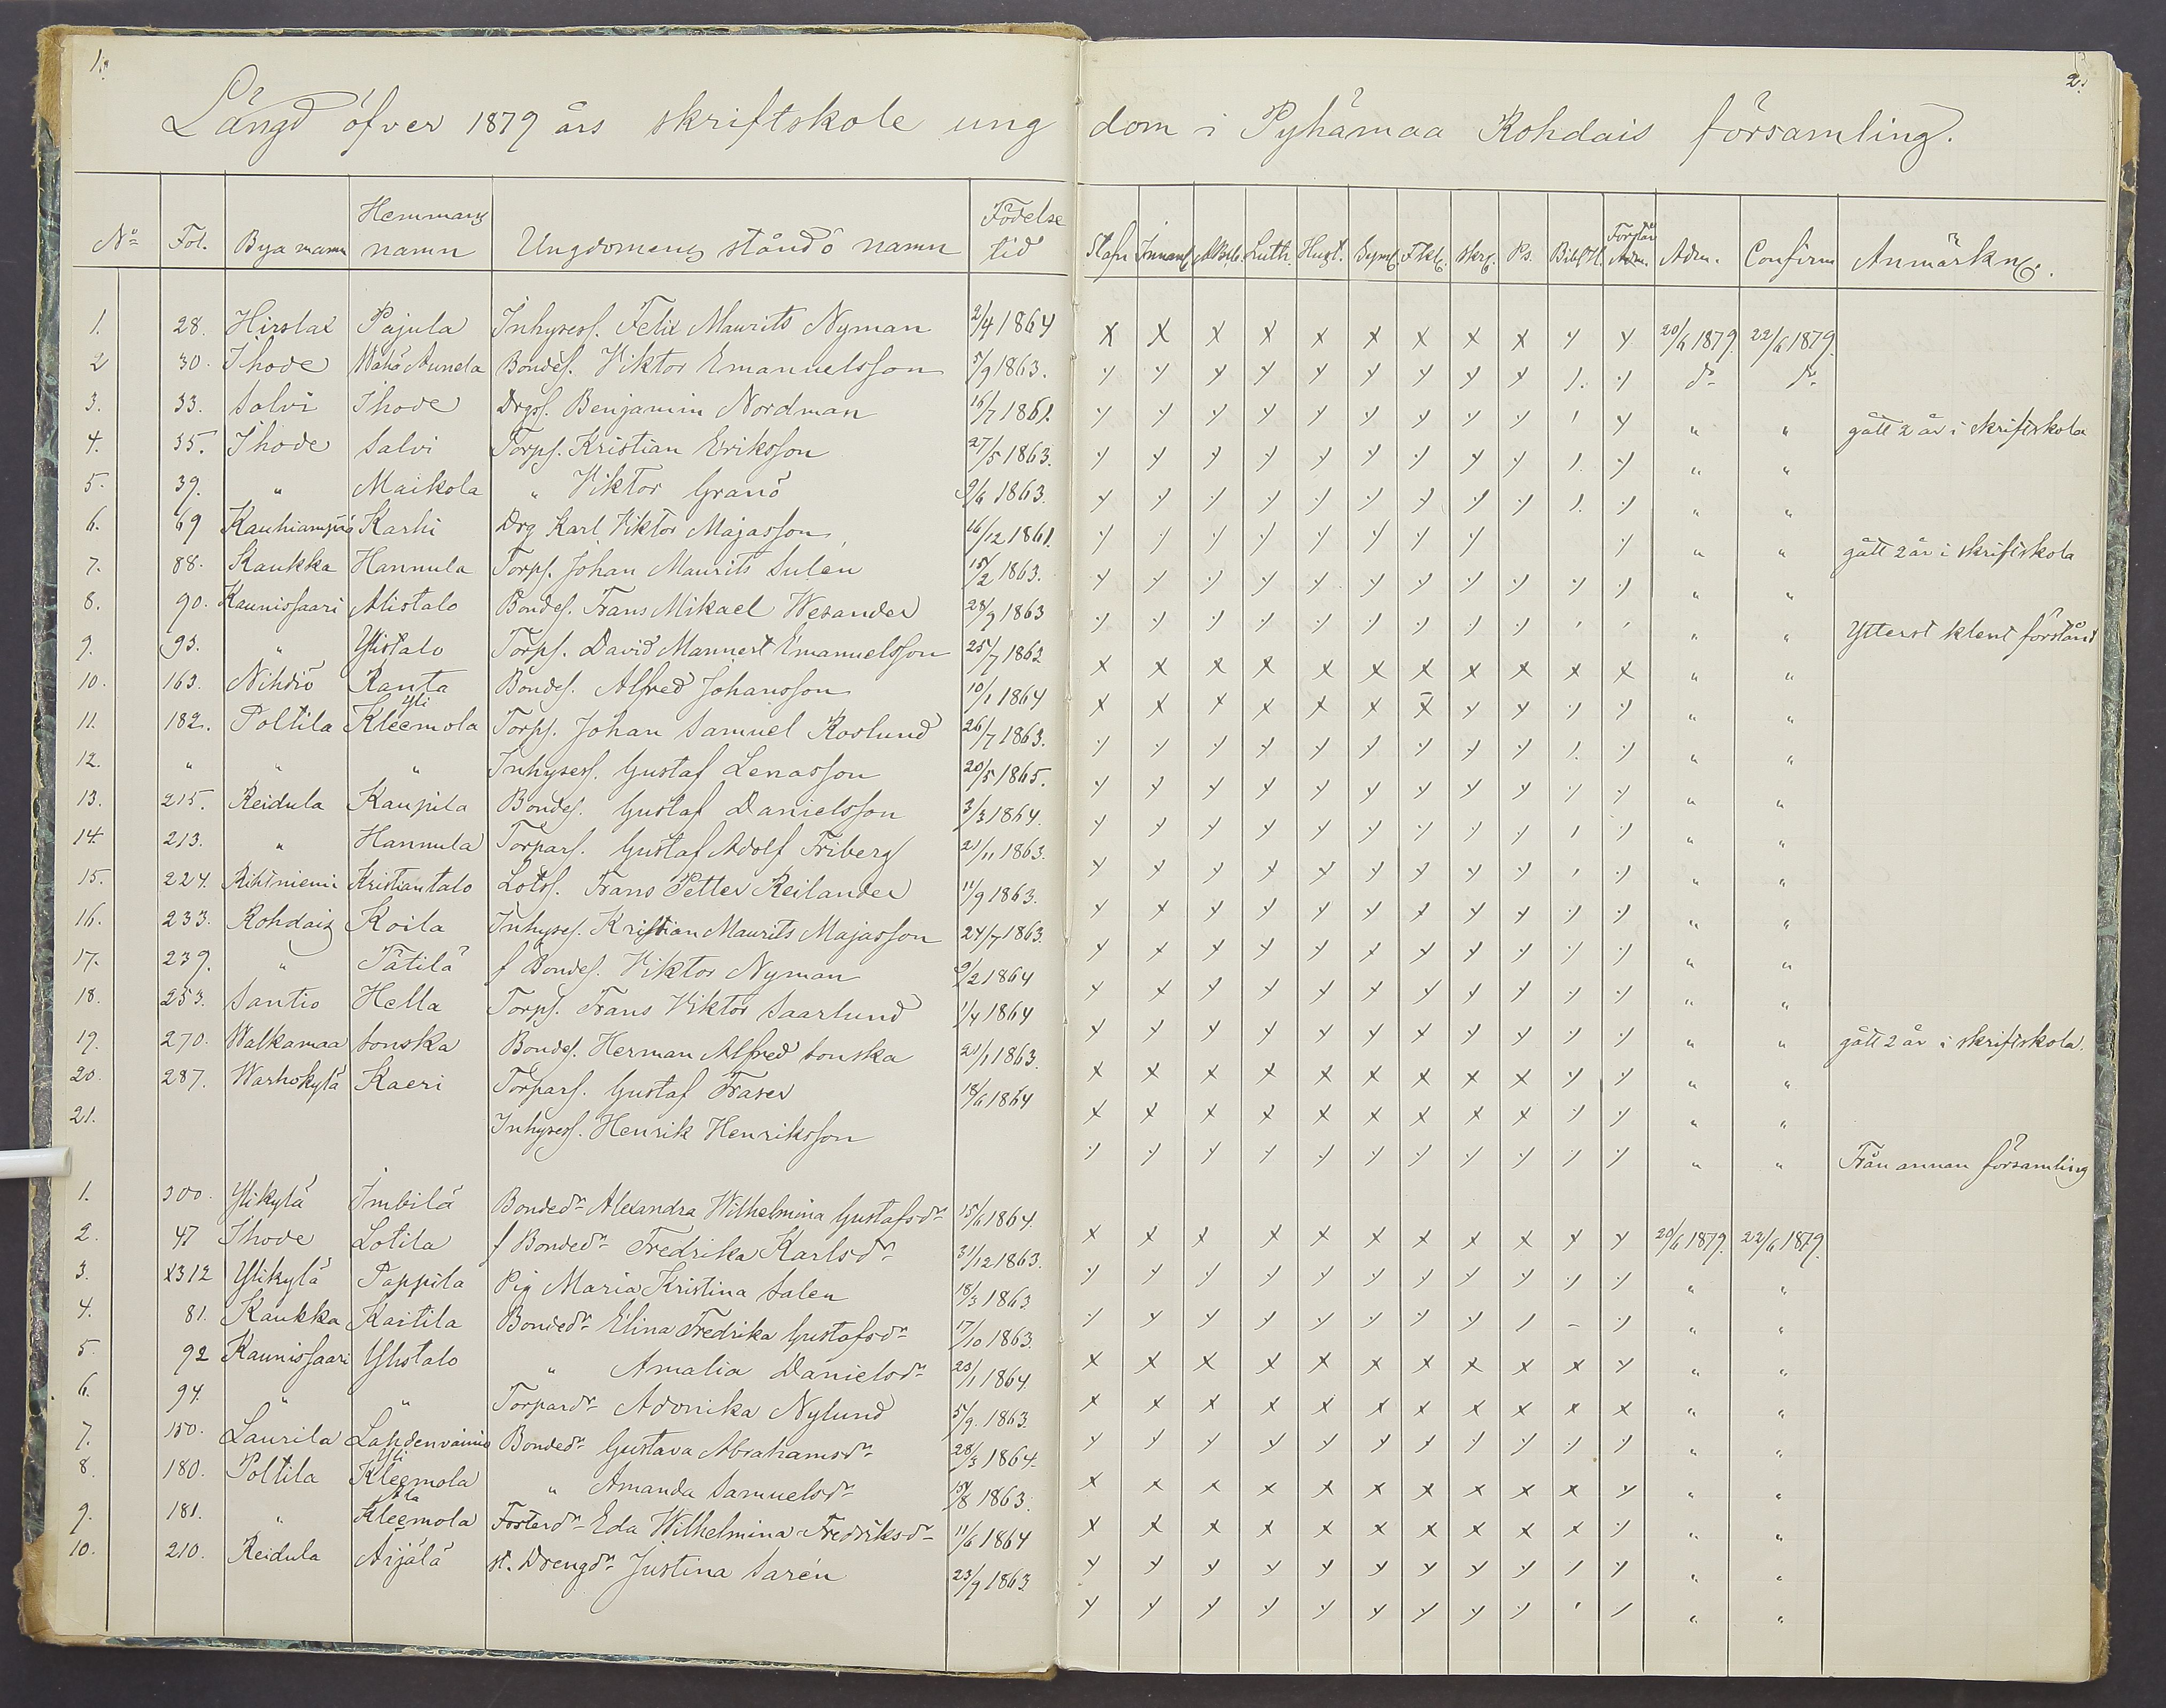 1.
2.
Längd öfver 1879 års skriftskole ungdom i Pyhämaa Rohdais församling.
No Fol. Bya namn Hemmans namn Ungdomens stånd o namn Födelse tid Stafn Innanl. ABcb. Luth. Hust. Symb. Ftkl. Skrg. Ps. Bibl H. Förstån Adm. Adm. Confirm Anmärkng.
1. 28. Hirslax Pajula Inhyress. Felix Maurits Nyman 2/4 1864 x x x x x x x x x y y 20/6 1879. 22/6 1879.
2 30. Ihode Wähä Aunela Bondes. Viktor Emanuelsson 5/9 1863. y y y y y y y y y 1. y do do
3. 33. Salvi Ihode Drgs. Benjamin Nordman 16/7 1861. y y y y y y y y y 1 y " " gått 2 år i skriftskola
4. 35. Ihode Salvi Torps. Kristian Eriksson 27/5 1863. y y y y y y y y y 1. y " "
5. 39. " Maikola " Viktor Granö 9/6 1863. y y y y y y y y y 1. y " "
6. 69 Kauhianpää Karhi Drg Karl Viktor Majasson 16/12 1861. y y y y y y y y y " " gått 2 år i skriftskola
7. 88. Kaukka Hannula Torps. Johan Maurits Sulen 15/2 1863. y y y y y y y y y y y " "
8. 90. Kaunissaari Alistalo Bondes. Frans Mikael Wesander 28/9 1863 y y y y y y y y y ' ' " " Ytterst klent förstånd
9. 93. " Ylistalo Torps. David Mannert Emanuelsson 25/7 1863 x x x x x x x x x x x " "
10. 163. Nihdiö Ranta Bondes. Alfred Johansson 10/1 1864 x x x x x x x y y y y " "
11. 182. Poltila Yli Kleemola Torps. Johan Samuel Roslund 26/7 1863. y y y y y y y y y 1. y " "
12. " " " Inhyress. Gustaf Lenasson 20/5 1865. y y y y y y y y y y y " "
13. 215. Reidula Kaupila Bondes. Gustaf Danielsson 3/3 1864. y y y y y y y y y 1 y " "
14. 213. " Hannula Torpars. Gustaf Adolf Friberg 21/11 1863. y y y y y y y y y ' y " "
15. 224. Rihtniemi Kristiantalo Lotss. Frans Petter Reilander 11/9 1863. y x y y y x y y y y y " "
16. 233. Rohdais Koila Inhyses. Kristian Maurits Majasson 24/7 1863. y x y y y x y y y y y " "
17. 239. " Tätilä f Bondes. Viktor Nyman 9/2 1864 y x y y y y y y y y y " "
18. 253. Santio Hella Torps. Frans Viktor Saarlund 1/4 1864 y y y y y y y y y y y " " gått 2 år i skriftskola.
19. 270. Walkamaa Sonska Bondes. Herman Alfred Sonska 21/1 1863. x x x x x x x x x y y " "
20. 287. Warhokylä Kaeri Torpars. Gustaf Fraser 18/6 1864 x x x x x x x x x y y " "
21. Inhyress. Henrik Henriksson y y y y y y y y y y y " " Från annan församling
1. 300. Ylikylä Imbilä Bondedr Alexandra Wilhelmina Gustafsdr 15/6 1864. x x x x x x x x x x y 20/6 1879. 22/6 1879.
2. 47 Ihode Lotila f Bondedr Fredrika Karlsdr 31/12 1863. y y y y y y y y y y y " "
3. x312 Ylikylä Pappila Pig Maria Kristina Salen 18/3 1863 y y y y y y y y 1 - y " "
4. 81. Kaukka Kaitila Bondedr Elina Fredrika Gustafsdr 17/10 1863. x x x x x x x x x x y " "
5. 92 Kaunissaari Ylistalo " Amalia Danielsdr 23/1 1864 x x x x x x x x x x x " "
6. 94. " " Torpardr Adonika Nylund 5/9. 1863. y y y y y y y y y y y " "
7. 150. Laurila Lahdenväinio Bondedr Gustava Abrahamsdr 28/3 1864. x x x x x x x x x x y " "
8. 180. Poltila Yli Kleemola " Amanda Samuelsdr 15/8 1863. x x x x x x x x x x y " "
9. 181. " Ala Kleemola Fosterdr Eda Wilhelmina Fredriksdr 11/6 1864 y y y y y y y y y 1 y " "
10. 210. Reidula Äijälä st. Drengdr Justina Sarén 23/9 1863. y y y y y y y y y ' / " "